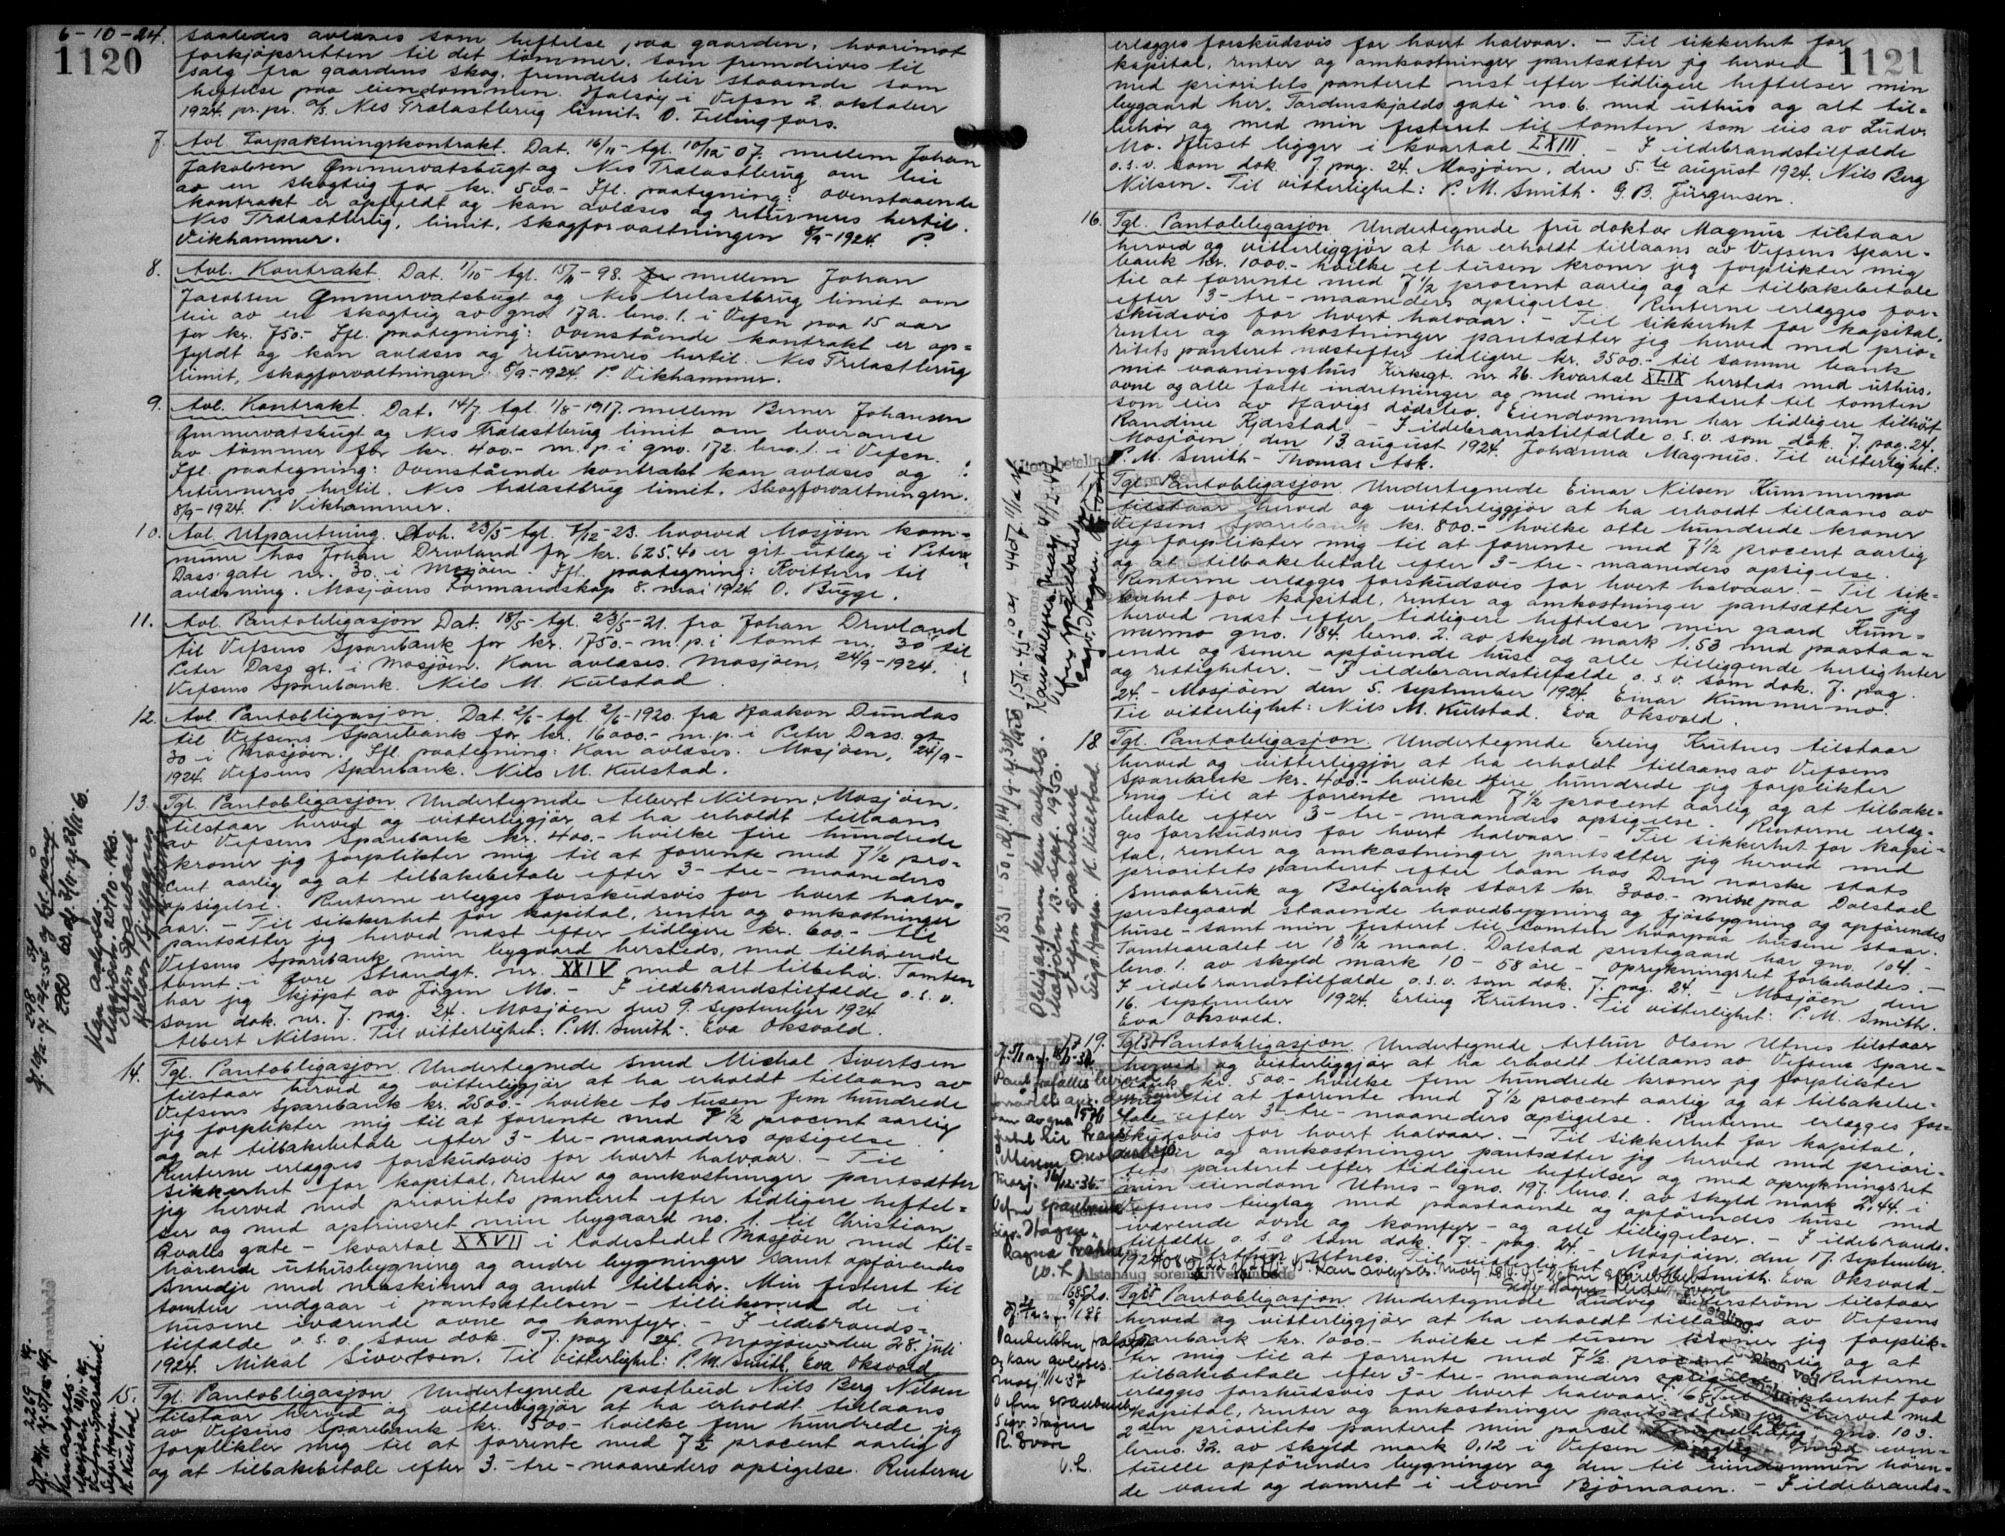 6-10-24.
1120
saaledes avlæses som heftelse paa gaarden, hvorimot
forkjøpsretten til det tømmer, som fremdrives til
salg fra gaardens skog, fremdeles blir staaende som
heftelse paa eiendommen. Halsøy i Vefsn 2. oktober
1924. pr.pr. a/s Nes Trælastbrug limit. O. Fellingfors.
7. Avl. Forpaktningskontrakt. Dat. 16/11 - tgl. 10/12-07. mellem Johan
Jakobsen Ømmervatsbugt og Nes Trælastbrug om leie
av en skogteig for kr. 500.- Ifl. paategning: Ovenstaaende
kontrakt er opfyldt og kan avlæses og returneres hertil.
Nes Trælastbrug, limit, skogforvaltningen 8/9-1924. P.
Vikhammer.
8. Avl. Kontrakt. Dat. 1/10 - tgl. 15/11-98. mellem Johan
Jacobsen Ømmervatsbugt og Nes trelastbrug limit om
leie av en skogteig av gno. 172. bno. 1. i Vefsn paa 15 aar
for kr. 750.- Ifl. paategning: Ovenstående kontrakt er op-
fyldt og kan avlæses og returneres hertil. Nes Trelastbrug
limit, skogforvaltningen 8/9-1924. P. Vikhammer.
9. Avl. Kontrakt. Dat. 14/7 tgl. 1/8-1917. mellem Berner Johansen
Ømmervatsbugt og Nes Trælastbrug limit om leveranse
av tømmer for kr. 400.- m.p.i gno. 172. bno. 1. i Vefsn.
Ifl. paategning: Ovenstående kontrakt kan avlæses og
returneres hertil. Nes trælastbrug limit. Skogforvaltningen.
8/9-1924. P. Vikhammer.
10. Avl. Utpantning. Avh. 23/5 - tgl. 7/12-23. hvorved Mosjøen kom-
mune hos Johan Drivland for kr. 625.40 er git utlæg i Peter
Dass' gate nr. 30. i Mosjøen. Ifl. paategning: Kvitteres til
avlæsning. Mosjøens Formandskap 8. mai 1924. O. Bugge.
11. Avl. Pantobligasjon Dat. 18/5 - tgl. 23/5-21. fra Johan Drivland
til Vefsens Sparebank for kr. 1750.- m.p.i tomt nr. 30 til
Peter Dass gt. i Mosjøen. Kan avlæses. Mosjøen, 24/9-1924.
Vefsens Sparebank. Nils M. Kulstad.
12. Avl. Pantobligasjon. Dat. 2/6 - tgl. 2/6-1920. fra Haakon Dundas
til Vefsens Sparebank for kr. 16000.- m.p.i Peter Dass gt.
30 i Mosjøen. Ifl. paategning: Kan avlæses. Mosjøen, 24/9-
1924. Vefsens Sparebank. Nils M. Kulstad.
13. Tgl. Pantobligasjon Undertegnede Albert Nilsen, Mosjøen,
tilstaar herved og vitterliggjør at ha erholdt tillaans
av Vefsens Sparebank kr. 400.- hvilke fire hundrede
kroner jeg forplikter mig til at forrente med 7 1/2 pro-
cent aarlig og at tilbakebetale efter 3-tre-maaneders
opsigelse. Renterne erlegges forskudsvis for hvert halv-
aar. - Til sikkerhet for kapital, renter og omkostninger
pantsætter jeg herved næst efter tidligere kr. 600.- til
Vefsens Sparebank min bygaard hersteds, med tilhørende
tomt i Øvre Strandgt. nr. XXIV med alt tilbehør. Tomten
har jeg kjøpt av Jørgen Mo. - I ildebrandstilfælde o.s.v.
som dok. nr. 7. pag. 24. Mosjøen den 9. september 1924.
Albert Nilsen. Til vitterlighet: P.M. Smith. Eva Oksvold.
14. Tgl. Pantobligasjon. Undertegnede smed Mickal Sivertsen
tilstaar herved og vitterliggjør at ha erholdt tillaans av
Vefsens Sparebank kr. 2500.- hvilke to tusen fem hundrede
jeg forplikter mig til at forrente med 7 1/2 procent aarlig
og at tilbakebetale efter 3-tre-maaneders opsigelse.
Renterne erlægges forskudsvis for hvert halvaar. - Til
sikkerhet for kapital, renter og omkostninger pantsætter
jeg herved med prioritets panteret efter tidligere heftel-
ser og med opryknisret min bygaard no. 1. til Christian
Qvalls gate - kvartal XXVII i ladestedet Mosjøen med til-
hørende uthusbygning og andre bygninger samt opførendes
smedje med maskiner og andet tilbehør. Min festeret til
tomten indgaar i pantsættelsen - tillikemed de i
husene iværende ovne og komfyr. - I ildebrands-
tilfælde o.s.v. som dok. 7. pag. 24. Mosjøen den 28. juli
1924. Mikal Sivertsen. Til vitterlighet: P.M. Smith. Eva Oksvold.
15. Tgl. Pantobligasjon Undertegnede postbud Nils Berg Nilsen
tilstaar herved og vitterliggjør at ha erholdt tillaans
av Vefsens Sparebank kr. 500.- hvilke fem hundrede jeg
forplikter mig til at forrente med 7 1/2 procent aarlig
og at tilbakebetale efter 3.-tre-maaneders opsigelse. Renterne
1121
erlægges forskudsvis for hvert halvaar. - Til sikkerhet for
kapital, renter og omkostninger pantsætter jeg herved
med prioritets panteret næst efter tidligere heftelser min
bygaard her. "Tordenskjolds gate" no. 6. med uthus og alt til-
behør og med min festeret til tomten som eies av Ludv.
Mo. Huset ligger i kvartal LXIII. - I ildebrandstilfælde
o.s.v. som dok. 7. pag. 24. Mosjøen, den 5.te august 1924. Nils Berg
Nilsen. Til vitterlighet: P.M. Smith. G.B. Jürgensen.
16. Tgl. Pantobligasjon. Undertegnede fru doktor Magnus tilstaar
herved og vitterliggjør at ha erholdt tillaans av Vefsens Spare-
bank kr. 1000.- hvilke et tusen kroner jeg forplikter mig
til at forrente med 7 1/2 procent aarlig og at tilbakebetale
efter 3-tre-maaneders opsigelse. Renterne erlægges for-
skudsvis for hvert halvaar. - Til sikkerhet for kapital,
renter og omkostninger pantsætter jeg herved med prio-
ritets panteret næstefter tidligere kr. 3500.- til samme bank
mit vaaningshus Kirkegt. nr. 26. kvartal XLIX hersteds med uthus,
ovne og alle faste indretninger og med min festeret til tomten
som eies av Havigs dødsbo. Eiendommen har tidligere tilhørt
Randine Kjærstad. - I ildebrandstilfælde o.s.v. som dok. 7. pag. 24.
Mosjøen, den 13 august 1924. Johanna Magnus. Til vitterlighet:
P.M. Smith - Thomas Ask.
Tgl. Pantobligasjon. Undertegnede Einar Nilsen Kummermo
tilstaar herved og vitterliggjør at ha erholdt tillaans av
Vefsens Sparebank kr. 800.- hvilke otte hundrede kroner
jeg forplikter mig til at forrente med 7 1/2 procent aarlig
og at tilbakebetale efter 3-tre-maaneders opsigelse.
Renterne erlægges forskudsvis for hvert halvaar. - Til sik-
kerhet for kapital, renter og omkostninger pantsætter jeg
herved næst efter tidligere heftelser min gaard Kum-
mermo gno. 184. brno. 2. av skyld mark 1,53 med paastaa-
ende og senere opførende huse og alle tilliggende herligheter
og rettigheter. - I ildebrandstilfælde o.s.v. som dok. 7. pag.
24. - Mosjøen den 5. september 1924. Einar Kummermo.
Til vitterlighet: Nils M. Kulstad. Eva Oksvold.
18 Tgl. Pantobligasjon. Undertegnede Erling Krutnes tilstaar
herved og vitterliggjør at ha erholdt tillaans av Vefsens
Sparebank kr. 400.- hvilke fire hundrede jeg forplikter
mig til at forrente med 7 1/2 procent aarlig og at tilbake-
betale efter 3-tre-maaneders opsigelse. Renterne erlæg-
ges forskudsvis for hvert halvaar. - Til sikkerhet for kapi-
tal, renter og omkostninger pantsætter jeg herved med
prioritets panteret efter laan hos Den norske stats
Smaabruk og Boligbank stort kr. 3000.- mine paa Dolstad
prestegaard staaende hovedbygning og fjøsbygning og opførendes
huse - samt min festeret til tomten hvorpaa husene staar.
Tomtearealet er 13 1/2 maal. Dolstad prestegaard har gno. 104 -
bno. 1. av skyld mark 10 - 58 øre - Oprykningsret forbeholdes. -
I ildebrandstilfælde o.s.v. som dok. 7. pag. 24. - Mosjøen den
16. september 1924. Erling Krutnes. Til vitterlighet: P.M. Smith.
Eva Oksvold.
19. Tgl. Pantobligasjon. Undertegnede Arthur Olsen Utnes tilstaar
herved og vitterliggjør at ha erholdt tillaans av Vefsens Spare-
bank kr. 500.- hvilke fem hundrede kroner jeg forplikter
mig til at forrente med 7 1/2 procent aarlig og at tilbakebe-
tale efter 3-tre-maaneders opsigelse. Renterne erlægges for-
skudsvis for hvert halvaar. - Til sikkerhet for kapital,
renter og omkostninger pantsætter jeg herved med priori-
tets panteret efter tidligere heftelser og med oprykningsret
min eiendom Utnes - gno. 197. bno. 1. av skyld mark 2,44 i
Vefsens tinglag med paastaaende og opførendes huse med
iværende ovne og komfyr - og alle tilliggelser. - I ildebrands-
tilfælde o.s.v. som dok. 7. - pag. 24. - Mosjøen, den 17. september
1924. Arthur Utnes. Til vitterlighet P.M. Smith. Eva Oksvold.
Tgl. Pantobligasjon. Undertegnede Ludvig tilstaar
herved og vitterliggjør at ha erholdt tillaans av Vefsens
Sparebank kr. 1000.- hvilke et tusen kroner jeg forplik-
ter mig til at forrente med 7 1/2 procent aarlig og at
tilbakebetale efter 3-tre-maaneders opsigelse. Renterne
erlægges forskudsvis for hvert halvaar. Til sikkerhet for
kapital, renter og omkostninger pantsætter jeg herved med
2den prioritets panteret min parcel gno. 103.
brno. 32. av skyld mark 0,12 i Vefsen tinglag med even-
tuelle opførendes bygninger og den til eiendommen høren-
de vand og damret i elven Bjørnaaen. - I ildebrands-